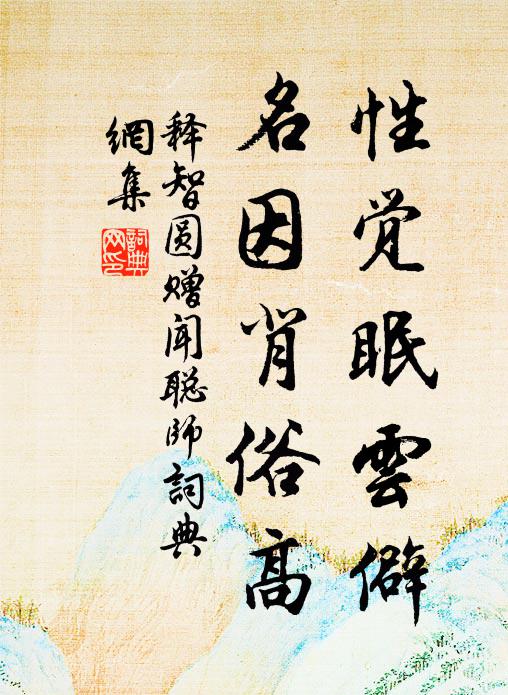 性觉眠雲僻
名因背俗高
释智圆赠闻聪师詞典
網集
詞典
网印